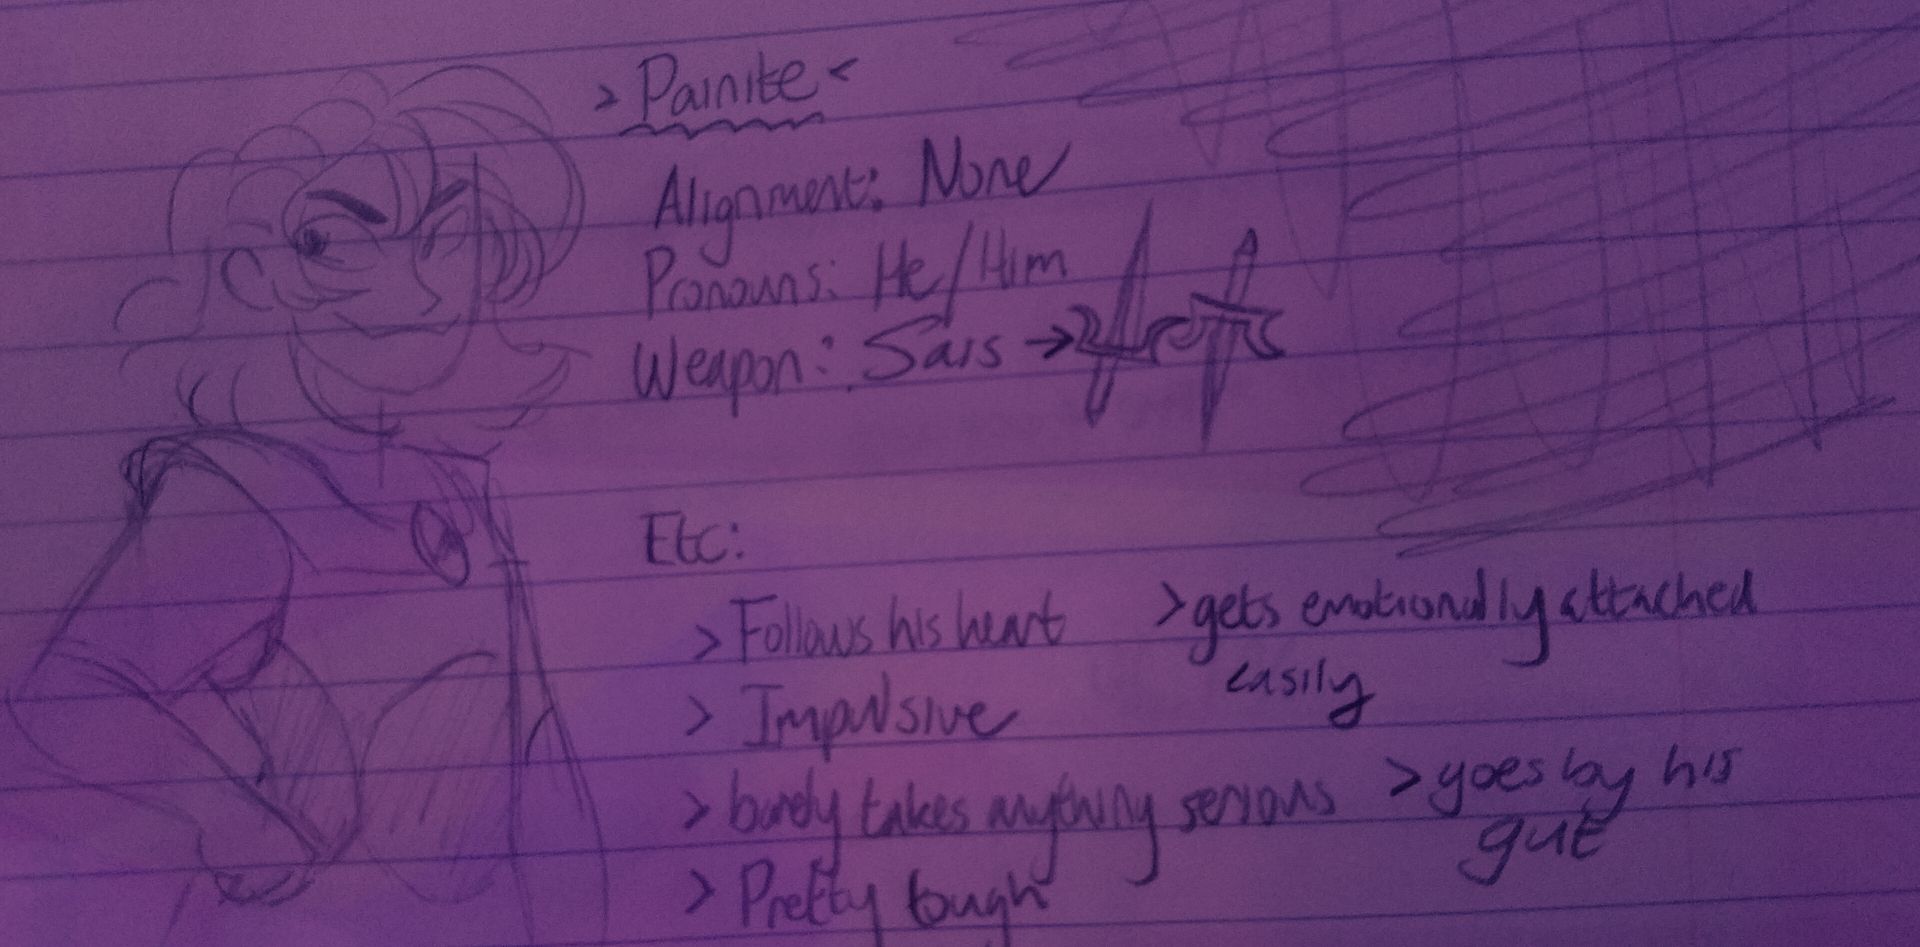 > Painite <
Alignment: None
Pronouns: He/Him
Weapon: Sais →
Etc:
> Follows his heart
> gets emotionally attached
easily
> Impulsive
> barely takes anything serious
> goes by his
gut
> Pretty tough